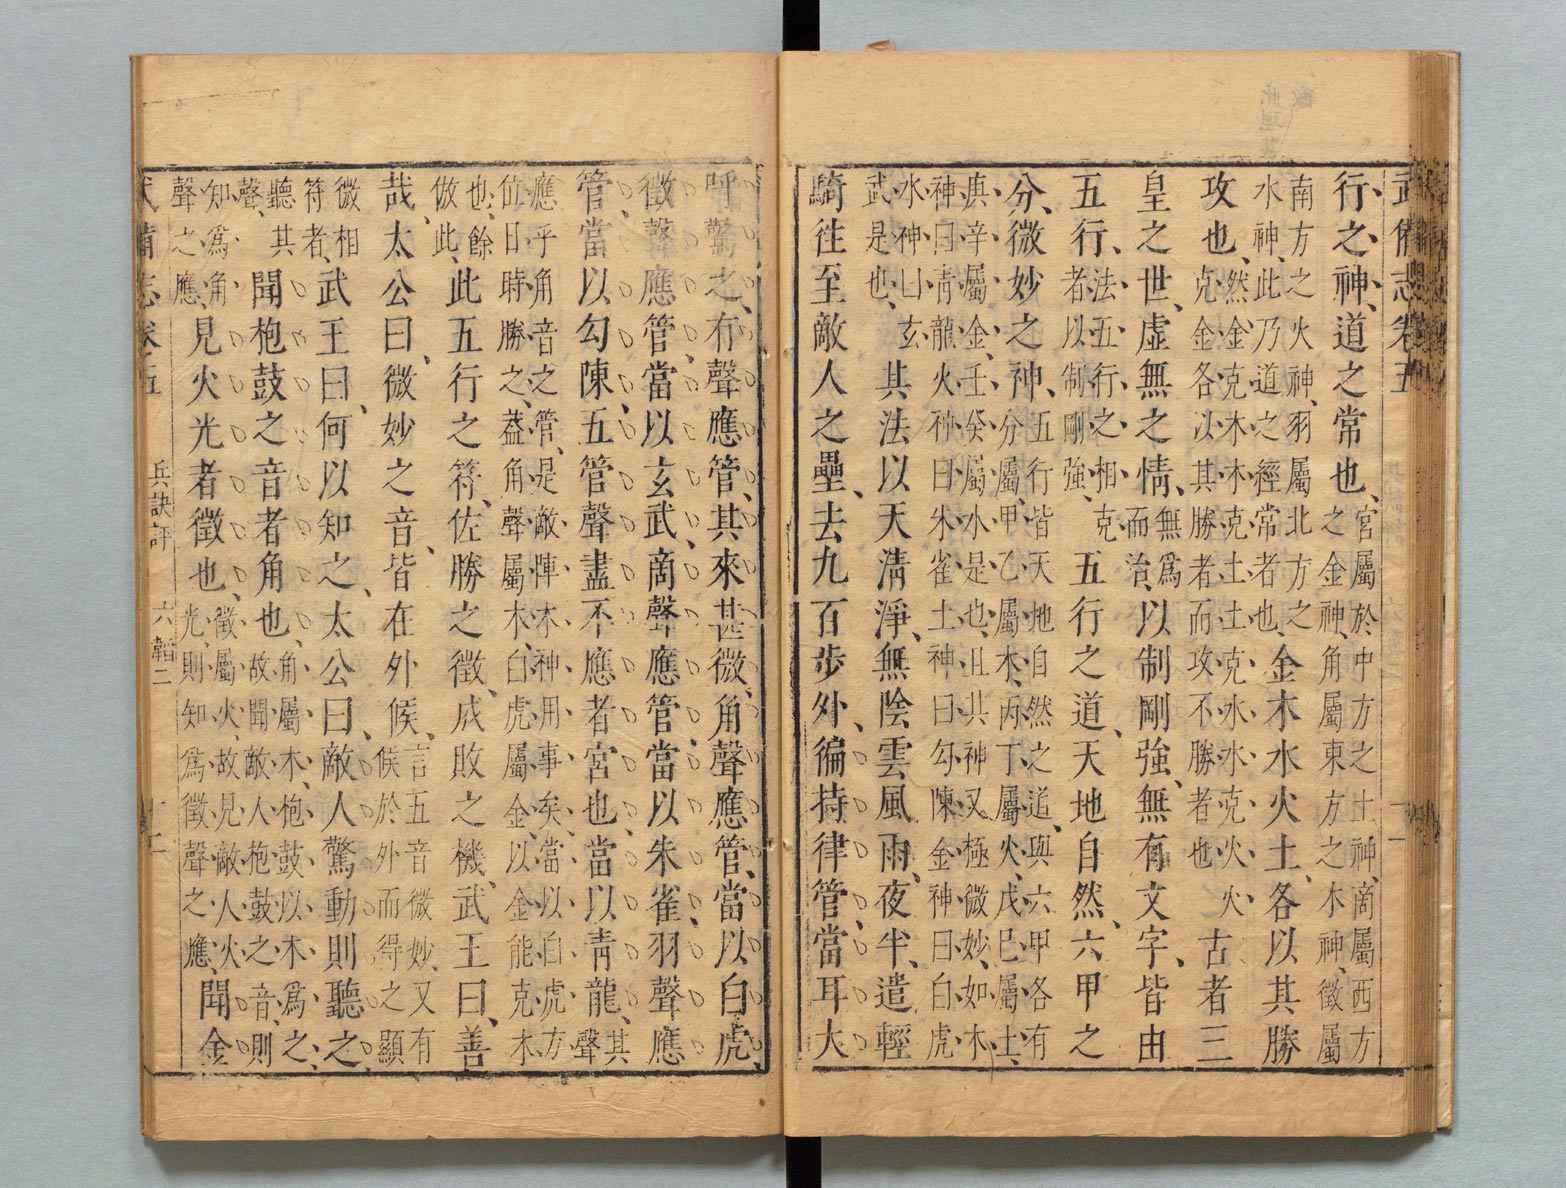 武備志卷五
行之神、道之常也、宮屬於中方之土神、商屬西方之金神、角屬東方之木神、徵屬
南方之火神、羽屬北方之水神、此乃道之經常者也、金木水火土、各以其勝
攻也、然金克木木克土土克水水克火火克金各以其勝者而攻不勝者也古者三
皇之世、虛無之情、無爲而治、以制剛強、無有文字、皆由
五行、法五行之相克者以制剛強、五行之道、天地自然、六甲之
分、微妙之神、五行皆天地自然之道、與六甲各有分屬、甲乙屬木、丙丁屬火、戊巳屬土、
庚辛屬金、壬癸屬水是也、且其神又極微妙、如木神曰青龍火神曰朱雀土神曰勾陳金神曰白虎
水神曰玄武是也、其法以天清淨、無陰雲風雨、夜半、遣輕
騎往至敵人之壘、去九百步外、徧持律管、當耳大
呼驚之、有聲應管、其來甚微、角聲應管、當以白虎、
徵聲應管、當以玄武、商聲應管、當以朱雀、羽聲應
管、當以勾陳、五管聲盡不應者、宮也、當以青龍、其聲
應乎角音之管、是敵陣木神用事矣、當以白虎方位日時勝之、蓋角聲屬木、白虎屬金、以金能克木
也、餘倣此、此五行之符、佐勝之徵、成敗之機、武王曰、善
哉、太公曰、微妙之音、皆在外候、言五音微妙、又有候於外而得之顯
微相符者、武王曰、何以知之、太公曰、敵人驚動則聽之、
聽其聲、聞枹鼓之音者角也、角屬木、枹鼓以木爲之、故聞敵人枹鼓之音、則
知爲角聲之應、見火光者徵也、徵屬火、故見敵人火光、則知爲徵聲之應、聞金
武備志卷五 兵訣評 六韜二 十二